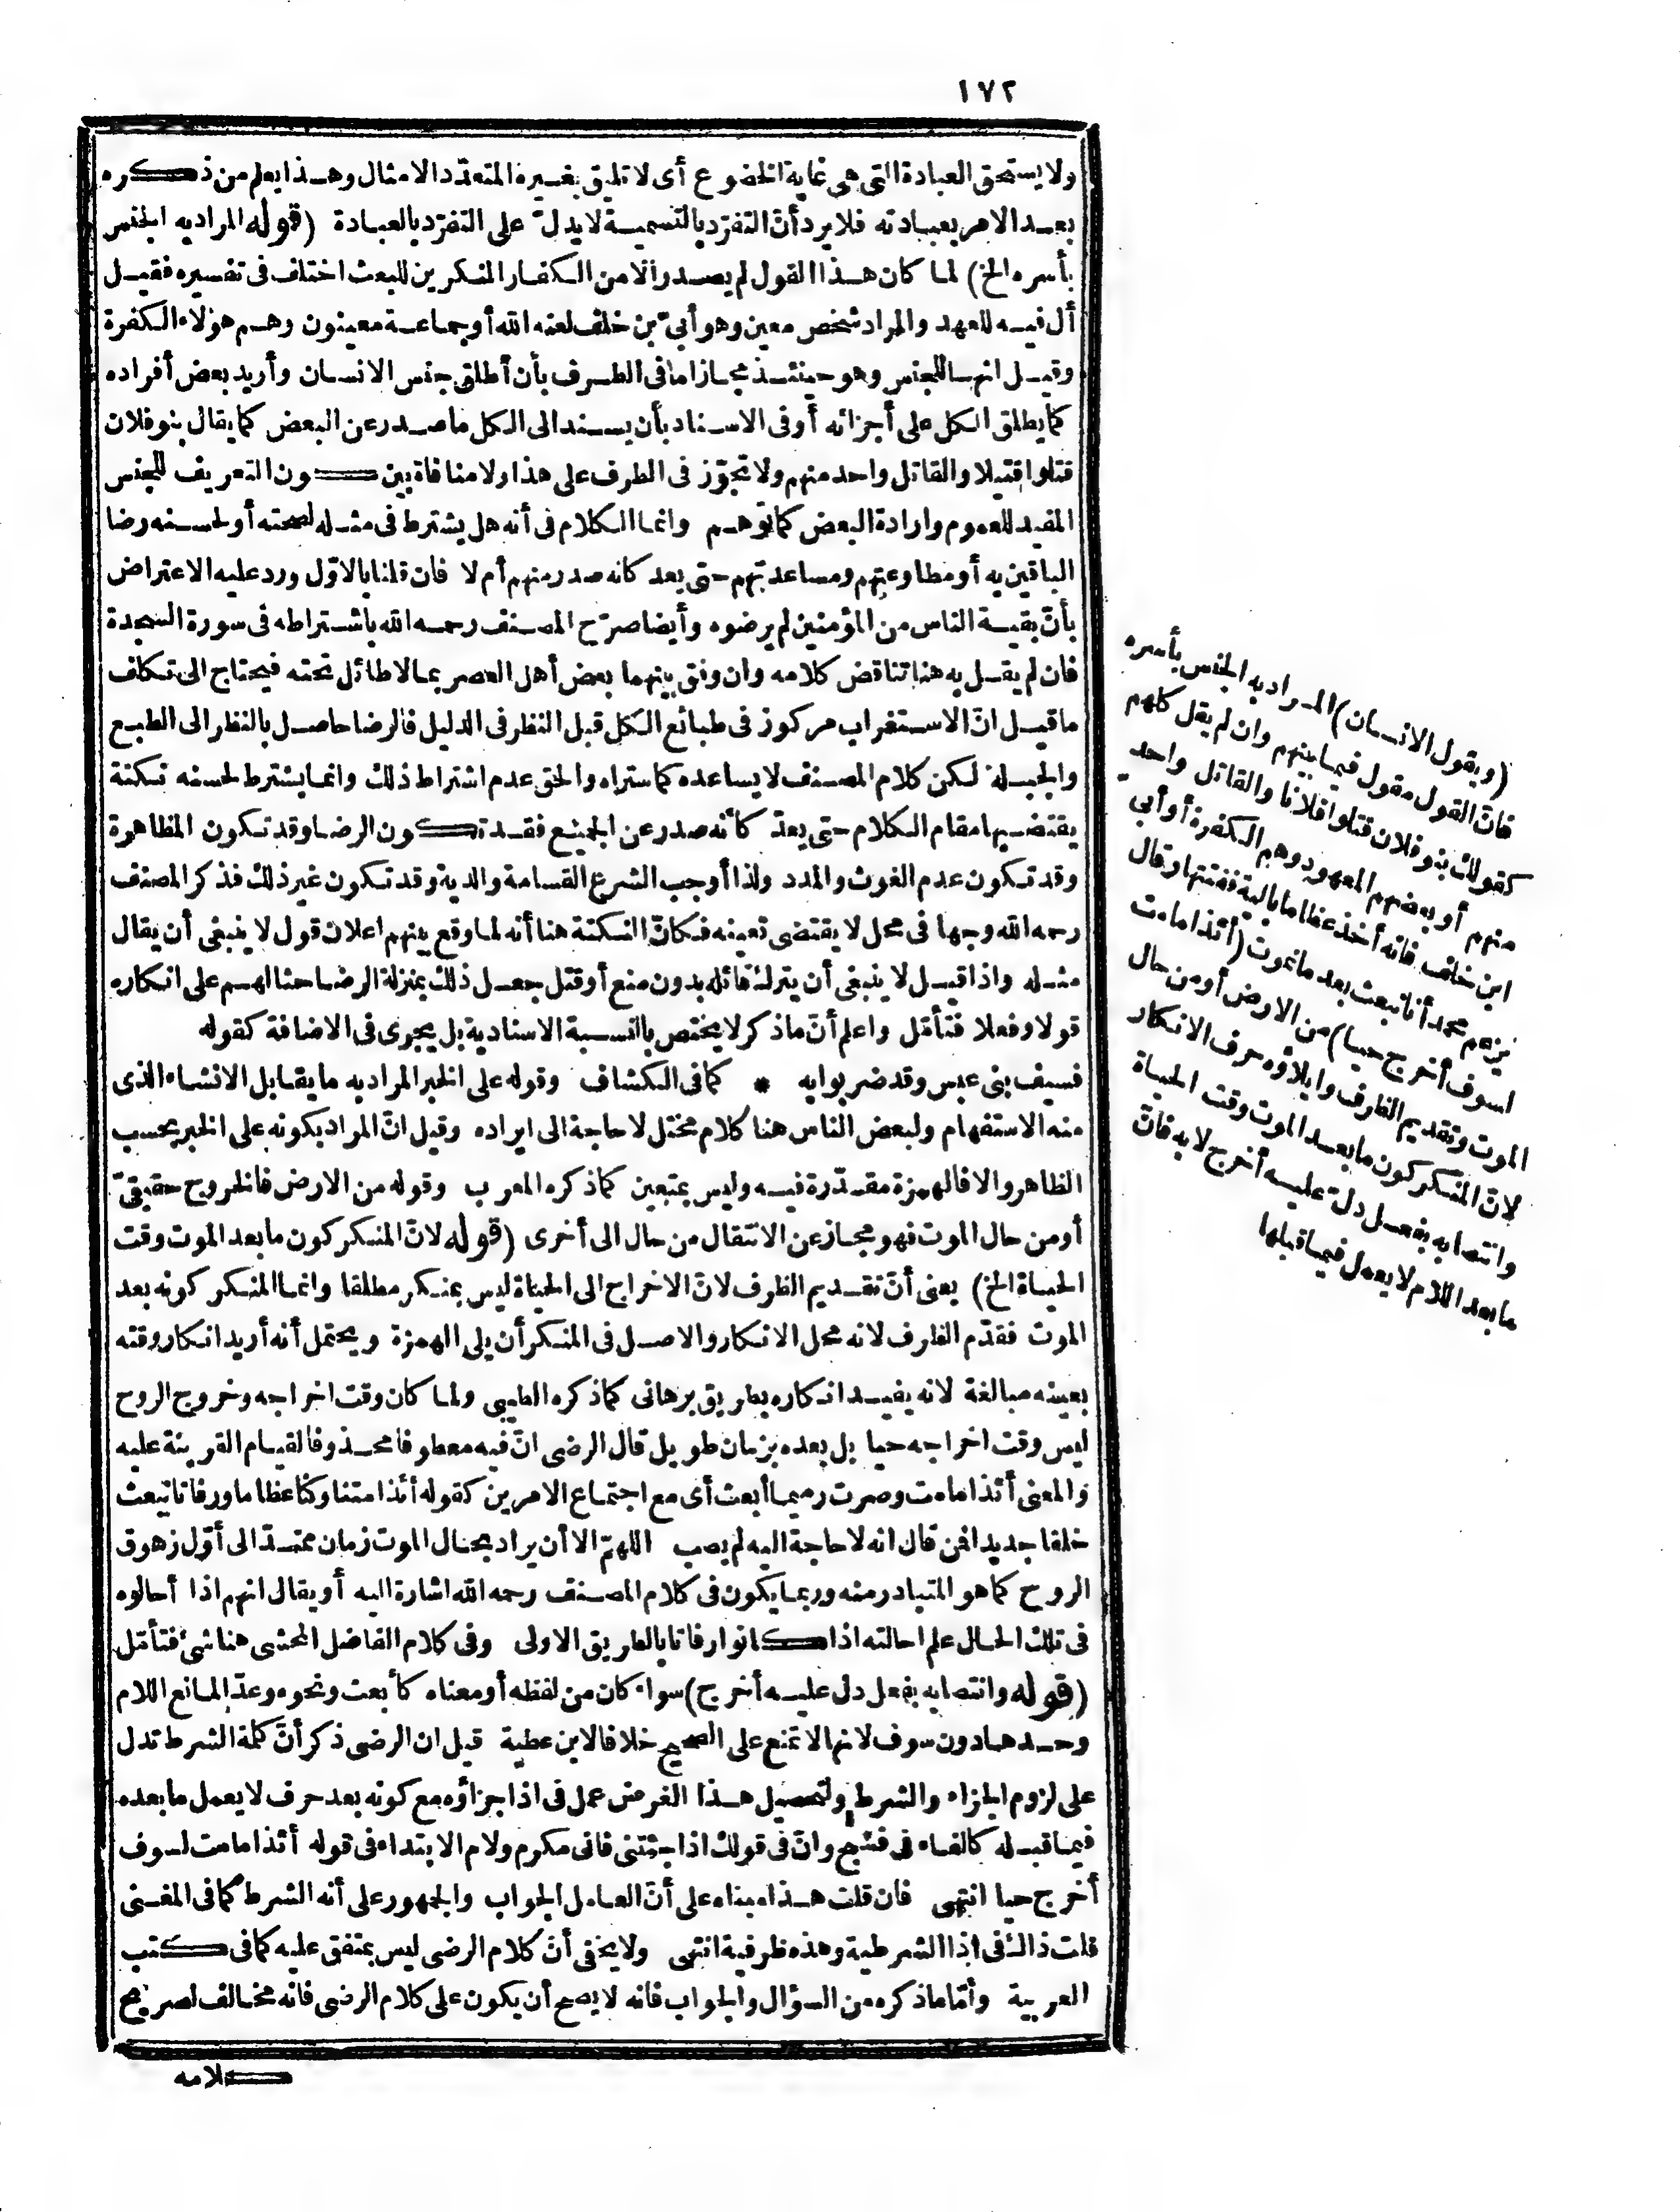 ١٧٢
ولا يستحق العبادة التى هى غاية الخضوع أى لا تليق بغيره المتعدّد الامثال وهذا يعلم من ذكره
بعد الامر بعبادته فلا يرد أنّ التفرّد بالتسمية لا يدلّ على التفرّد بالعبادة (قوله المراد به الجنس
بأسره الخ) لما كان هذا القول لم يصدر الا من الكفار المنكرين للبعث اختلف فى تفسيره فقيل
أل فيه للعهد والمراد شخص معين وهو أبىّ بن خلف لعنه الله أو جماعة معينون وهم هؤلاء الكفرة
وقيل انها للجنس وهو حينئذ مجاز اما فى الطرف بأن أطلق جنس الانسان وأريد بعض أفراده
كما يطلق الكل على أجزائه أو فى الاسناد بأن يسند الى الكل ما صدر عن البعض كما يقال بنو فلان
قتلوا قتيلا والقاتل واحد منهم ولا تجوّز فى الطرف على هذا ولا منافاة بين كون التعريف للجنس
المفيد للعموم وارادة البعض كما توهم وانما الكلام فى أنه هل يشترط فى مثله لصحته أو لحسنه رضا
الباقين به أو مطاوعتهم ومساعدتهم حتى يعد كانه صدر منهم أم لا فان قلنا بالاوّل ورد عليه الاعتراض
بأنّ بقية الناس من المؤمنين لم يرضوه وأيضا صرّح المصنف رحمه الله باشتراطه فى سورة السجدة
فان لم يقل به هنا تناقض كلامه وان وفق بينهما بعض أهل العصر بما لا طائل تحته فيحتاج الى تكلف
ما قيل انّ الاستغراب مركوز فى طبائع الكل قبل النظر فى الدليل فالرضا حاصل بالنظر الى الطبع
والجبلة لكن كلام المصنف لا يساعده كما ستراه والحق عدم اشتراط ذلك وانما يشترط لحسنه نكتة
يقتضيها مقام الكلام حتى يعدّ كأنه صدر عن الجميع فقد تكون الرضا وقد تكون المظاهرة
وقد تكون عدم الغوث والمدد ولذا أوجب الشرع القسامة والدية وقد تكون غير ذلك فذكر المصنف
رحمه الله وجها فى محل لا يقتضى تعينه فكانّ النكتة هنا أنه لما وقع بينهم اعلان قول لا ينبغى أن يقال
مثله واذا قيل لا ينبغى أن يترك قائله بدون منع أو قتل جعل ذلك بمنزلة الرضا حثا لهم على انكاره
قولا وفعلا فتأمّل واعلم أنّ ما ذكر لا يختص بالنسبة الاسنادية بل يجرى فى الاضافة كقوله
فسيف بنى عبس وقد ضربوا به * كما فى الكشاف وقوله على الخبر المراد به ما يقابل الانشاء الذى
منه الاستفهام ولبعض الناس هنا كلام مختل لا حاجة الى ايراده وقيل انّ المراد بكونه على الخبر بحسب
الظاهر والا فالهمزة مقدّرة فيه وليس بمتعين كما ذكره المعرب وقوله من الارض فالخروج حقيقىّ
أو من حال الموت فهو مجاز عن الانتقال من حال الى أخرى (قوله لانّ المنكر كون ما بعد الموت وقت
الحياة الخ) يعنى أنّ تقديم الظرف لانّ الاخراج الى الحياة ليس بمنكر مطلقا وانما المنكر كونه بعد
الموت فقدّم الظرف لانه محل الانكار والاصل فى المنكر أن يلى الهمزة ويحتمل أنه أريد انكار وقته
بعينه مبالغة لانه يفيد انكاره بطريق برهانى كما ذكره الطيبى ولما كان وقت اخراجه وخروج الروح
ليس وقت اخراجه حيا بل بعده بزمان طويل قال الرضى انّ فيه معطوفا محذوفا لقيام القرينة عليه
والمعنى أئذا ما مت وصرت رميما أبعث أى مع اجتماع الامرين كقوله أئذا متنا وكنا عظاما ورفاتا نبعث
خلقا جديدا فمن قال انه لا حاجة اليه لم يصب اللهمّ الا أن يراد بحال الموت زمان ممتدّ الى أوّل زهوق
الروح كما هو المتبادر منه وربما يكون فى كلام المصنف رحمه الله اشارة اليه أو يقال انهم اذا أحالوه
فى تلك الحال علم احالته اذا كانوا رفاتا بالطريق الاولى وفى كلام الفاضل المحشى هنا شئ فتأمّل
(قوله وانتصابه بفعل دل عليه أخرج) سواء كان من لفظه أو معناه كأبعث ونحوه وعدّ المانع اللام
وحدها دون سوف لانها لا تمنع على الصحيح خلافا لابن عطية قيل ان الرضى ذكر أنّ كلة الشرط تدل
على لزوم الجزاء والشرط ولتحصيل هذا الغرض عمل فى اذا جزاؤه مع كونه بعد حرف لا يعمل ما بعده
فيما قبله كالفاء فى فسبح وانّ فى قولك اذا جئتنى فانى مكرم ولام الابتداء فى قوله أئذا ما مت لسوف
أخرج حيا انتهى فان قلت هذا مبناه على أنّ العامل الجواب والجمهور على أنه الشرط كما فى المغنى
قلت ذاك فى اذا الشرطية وهذه ظرفية انتهى ولا يخفى أنّ كلام الرضى ليس بمتفق عليه كما فى كتب
العربية وأمّا ما ذكره من السؤال والجواب فانه لا يصح أن يكون على كلام الرضى فانه مخالف لصريح
كلامه
(ويقول الانسان) المراد به الجنس بأسره
فانّ القول مقول فيما بينهم وان لم يقل كلهم
كقولك بنو فلان قتلوا فلانا والقاتل واحد
منهم أو بعضهم المعهود وهم الكفرة أو أبىّ
ابن خلف فانه أخذ عظاما بالية ففتتها وقال
يزعم محمد أنا نبعث بعد ما نموت (أئذا ما مت
لسوف أخرج حيا) من الارض أو من حال
الموت وتقديم الظرف وايلاؤه حرف الانكار
لانّ المنكر كون ما بعد الموت وقت الحياة
وانتصابه بفعل دلّ عليه أخرج لا به فانّ
ما بعد اللام لا يعمل فيما قبلها